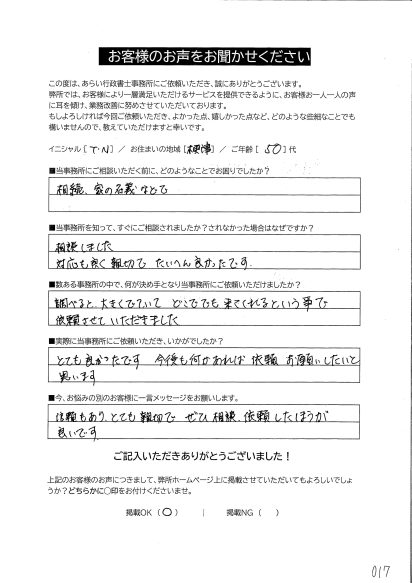 お客様のお声をお聞かせください
この度は、あらい行政書士事務所にご依頼いただき、誠にありがとうございます。
弊所では、お客様により一層満足いただけるサービスを提供できるように、お客様お一人一人の声
に耳を傾け、業務改善に努めさせていただいております。
もしよろしければ今回ご依頼いただき、よかった点、嬉しかった点など、どのような些細なことでも
構いませんので、教えていただけますと幸いです。
イニシャル [ T・N ] / お住まいの地域 [ 根津 ] / ご年齢 [ 50 ] 代
■当事務所にご相談いただく前に、どのようなことでお困りでしたか?
相続、家の名義などで
■当事務所を知って、すぐにご相談されましたか?されなかった場合はなぜですか?
相談しました
対応も良く親切で たいへん良かったです.
■数ある事務所の中で、何が決め手となり当事務所にご依頼いただけましたか?
調べると、大きくでていて どこでも来てくれるという事で
依頼させていただきました
■実際に当事務所にご依頼いただき、いかがでしたか?
とても良かったです 今後も何かあれば 依頼 お願いしたいと
思います
■今、お悩みの別のお客様に一言メッセージをお願いします。
信頼もあり、とても親切で ぜひ相談、依頼したほうが
良いです
ご記入いただきありがとうございました!
上記のお客様のお声につきまして、弊所ホームページ上に掲載させていただいてもよろしいでしょ
うか?どちらかに○印をお付けくださいませ。
掲載OK ( ○ ) | 掲載NG ( )
017